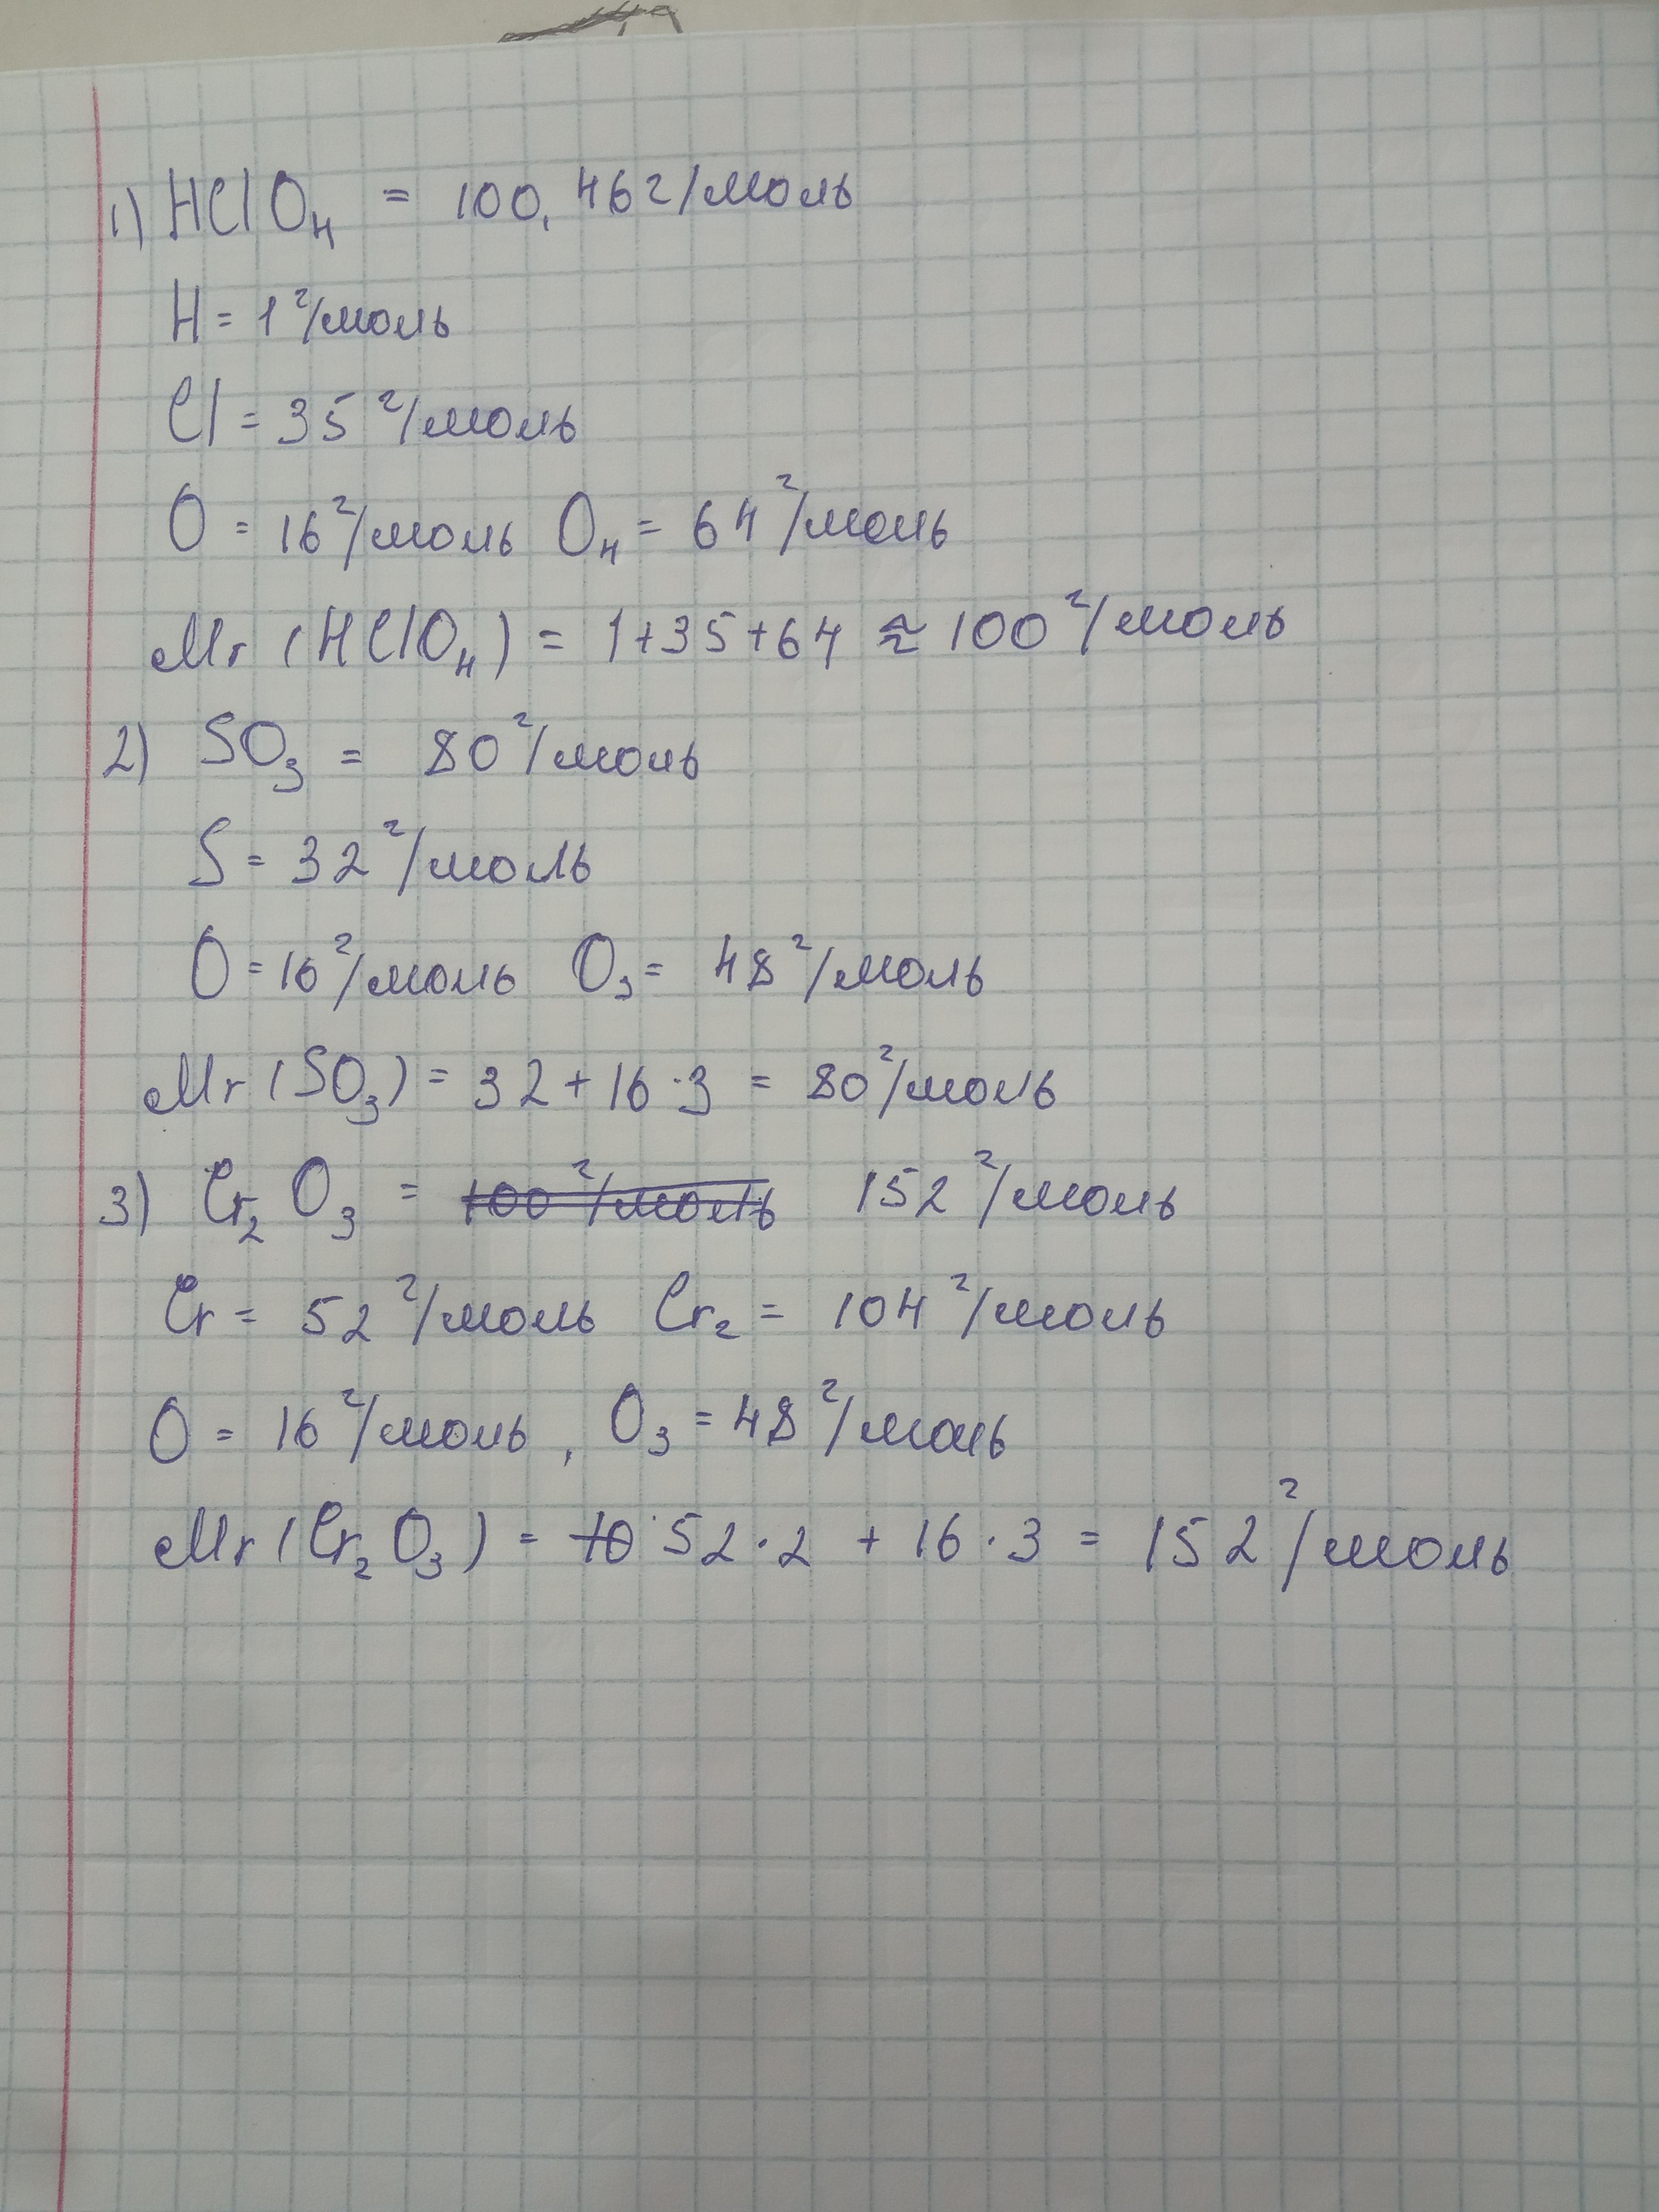 1) HClO₄ = 100,46 г/моль
H = 1 г/моль
Cl = 35 г/моль
O = 16 г/моль O₄ = 64 г/моль
Mr (HClO₄) = 1+35+64 ≈ 100 г/моль
2) SO₃ = 80 г/моль
S = 32 г/моль
O = 16 г/моль O₃ = 48 г/моль
Mr (SO₃) = 32 + 16 · 3 = 80 г/моль
3) Cr₂O₃ = 100 г/моль 152 г/моль
Cr = 52 г/моль Cr₂ = 104 г/моль
O = 16 г/моль, O₃ = 48 г/моль
Mr (Cr₂O₃) = 10 52 · 2 + 16 · 3 = 152 г/моль